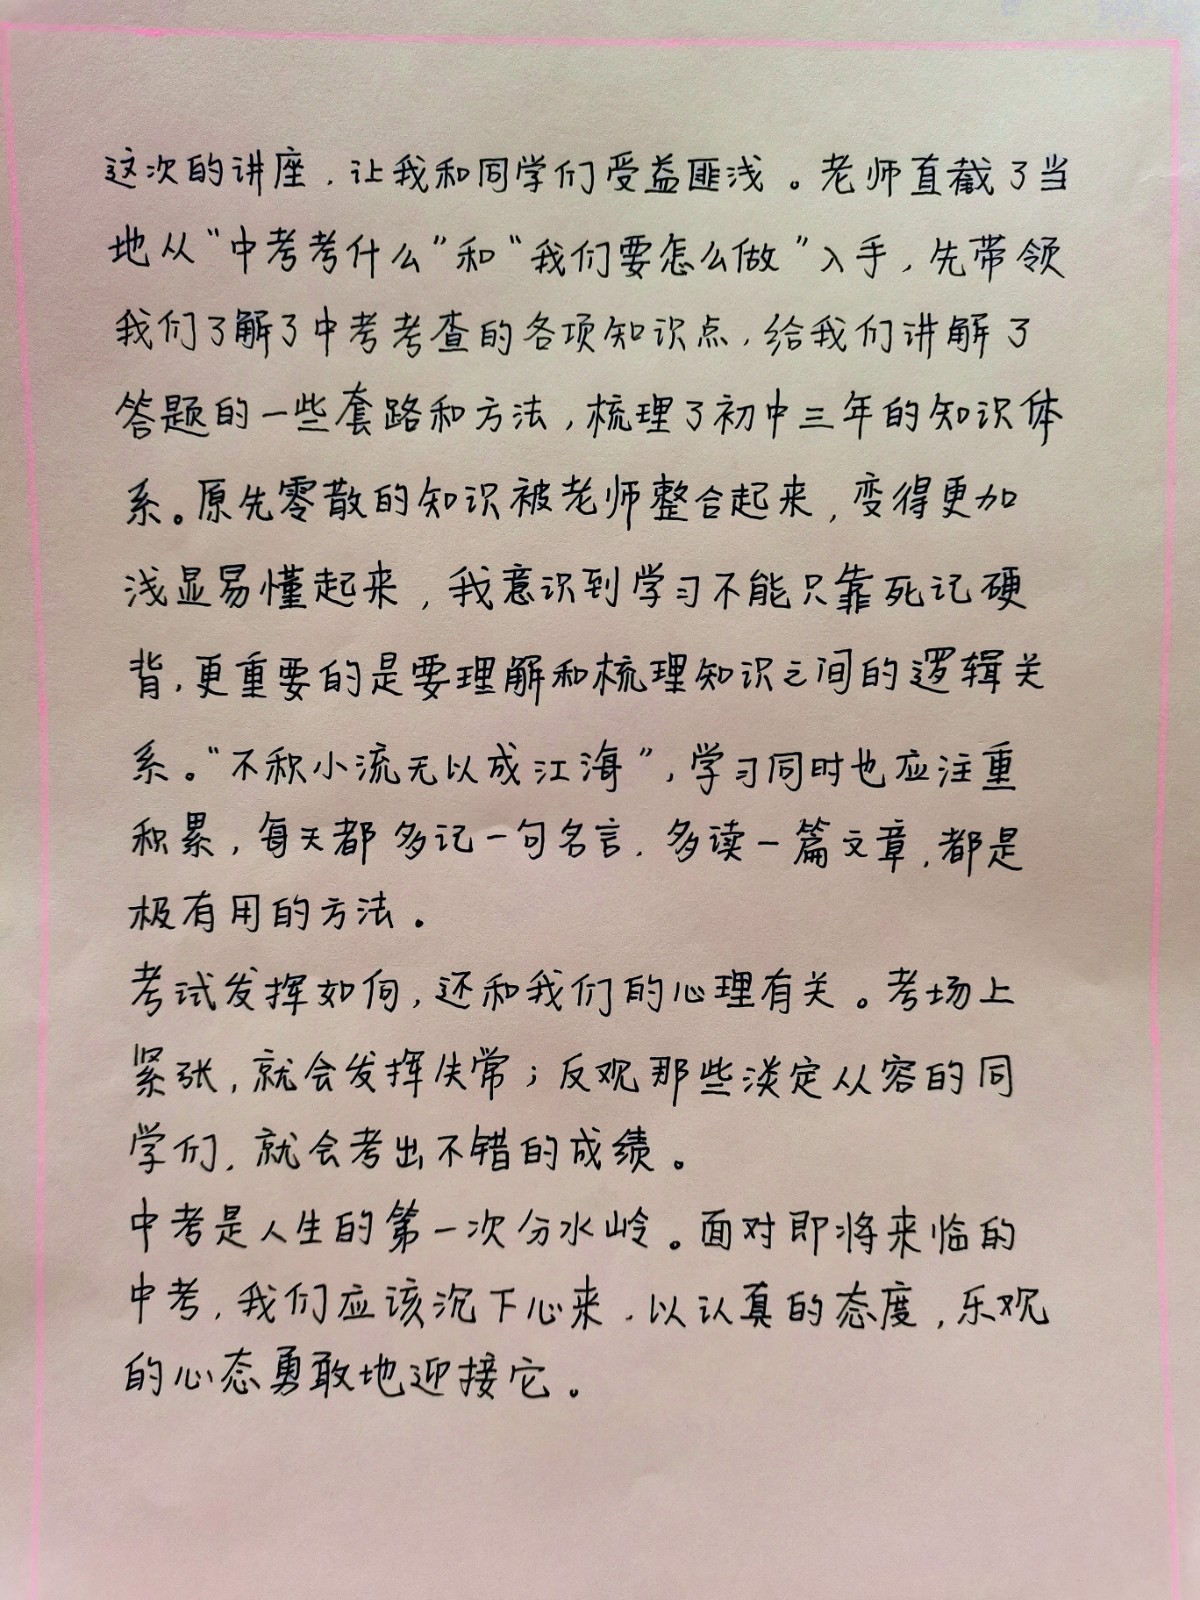 这次的讲座，让我和同学们受益匪浅。老师直截了当
地从“中考考什么”和“我们要怎么做”入手，先带领
我们了解了中考考查的各项知识点，给我们讲解了
答题的一些套路和方法，梳理了初中三年的知识体
系。原先零散的知识被老师整合起来，变得更加
浅显易懂起来，我意识到学习不能只靠死记硬
背，更重要的是要理解和梳理知识之间的逻辑关
系。“不积小流无以成江海”，学习同时也应注重
积累，每天都多记一句名言，多读一篇文章，都是
极有用的方法。
考试发挥如何，还和我们的心理有关。考场上
紧张，就会发挥失常；反观那些淡定从容的同
学们，就会考出不错的成绩。
中考是人生的第一次分水岭。面对即将来临的
中考，我们应该沉下心来，以认真的态度，乐观
的心态勇敢地迎接它。